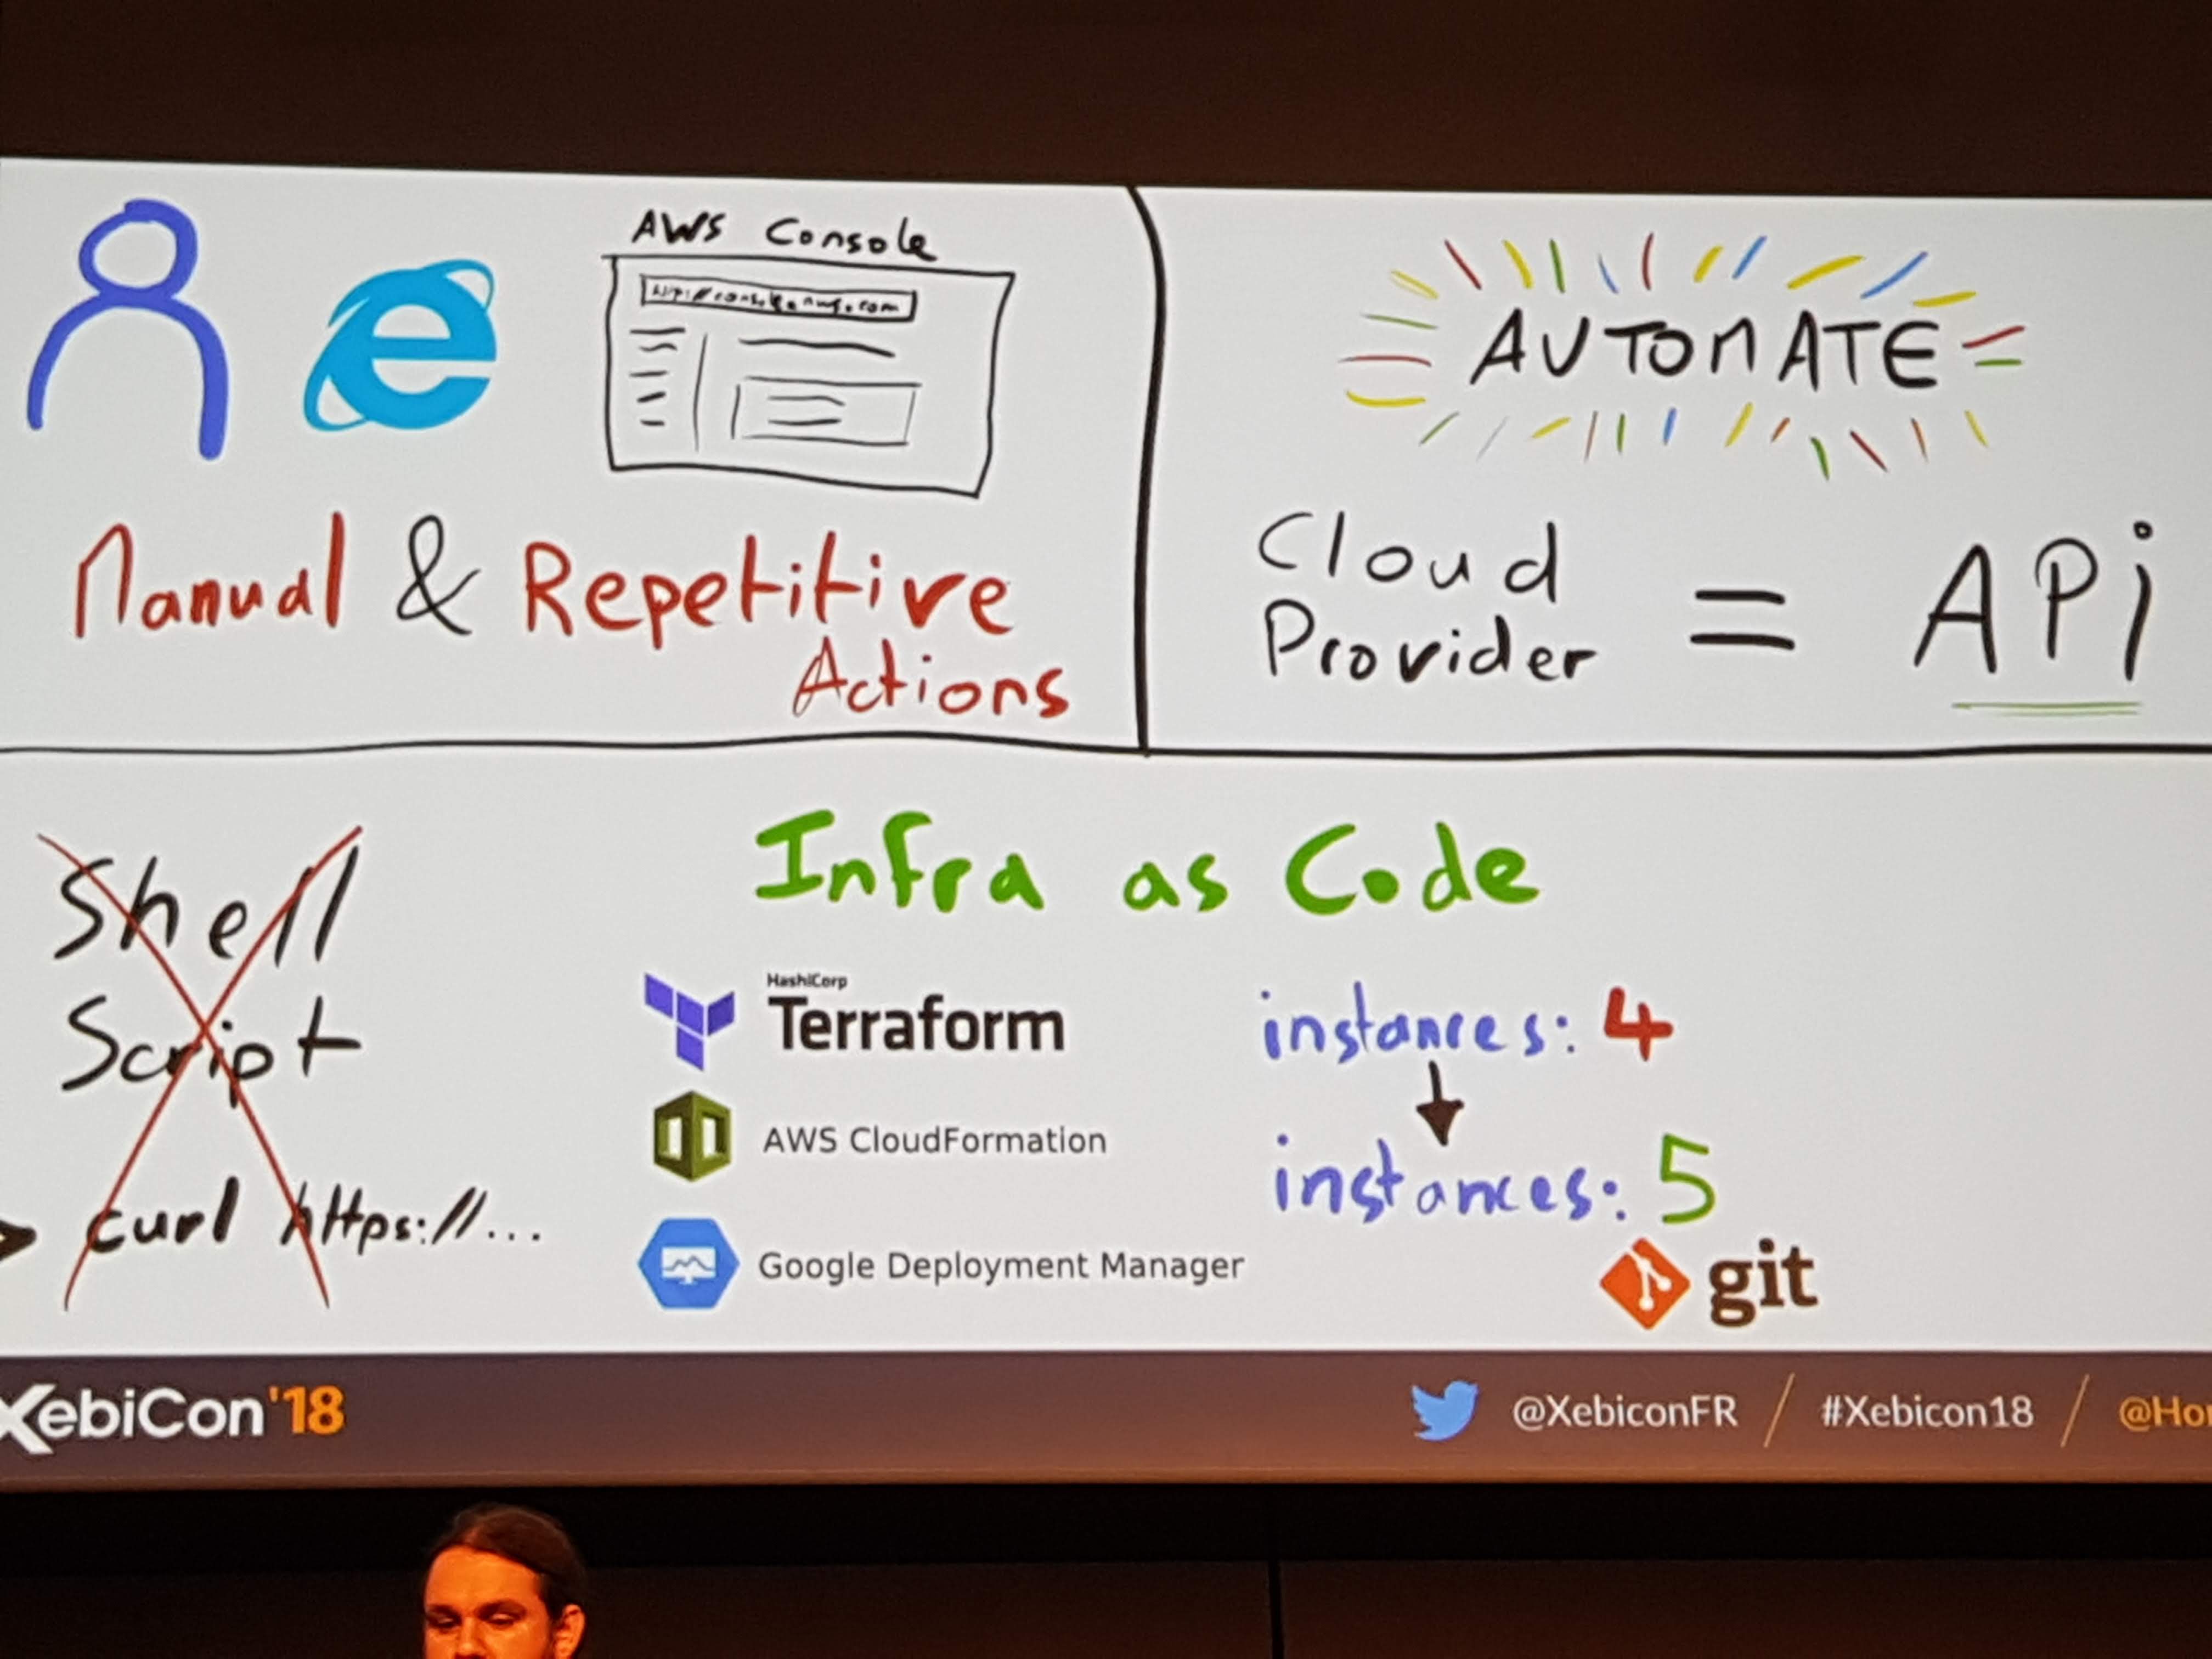 AWS Console
Manual & Repetitive
Actions
AUTOMATE
Cloud
Provider = APi
Shell
Script
curl https://...
Infra as Code
HashiCorp
Terraform
AWS CloudFormation
Google Deployment Manager
instances: 4
instances: 5
git
XebiCon'18
@XebiconFR / #Xebicon18 /